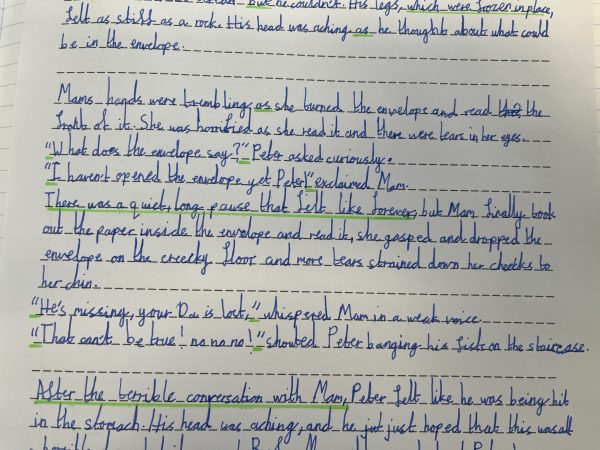 but he couldn't. His legs, which were frozen in place,
felt as stiff as a rock. His head was aching as he thought about what could
be in the envelope.
Mams hands were trembling as she turned the envelope and read the
front of it. She was horrified as she read it and there were tears in her eyes.
"What does the envelope say?" Peter asked curiously.
"I haven't opened the envelope yet Peter!" exclaimed Mam.
There was a quiet, long pause that felt like forever, but Mam finally took
out the paper inside the envelope and read it, she gasped and dropped the
envelope on the creeky floor and more tears strained down her cheeks to
her chin.
"He's missing, your Da is lost," whispered Mam in a weak voice.
"That can't be true! no no no!" shouted Peter banging his fists on the staircase.
After the terrible conversation with Mam, Peter felt like he was being hit
in the stomach. His head was aching, and he just hoped that this was all